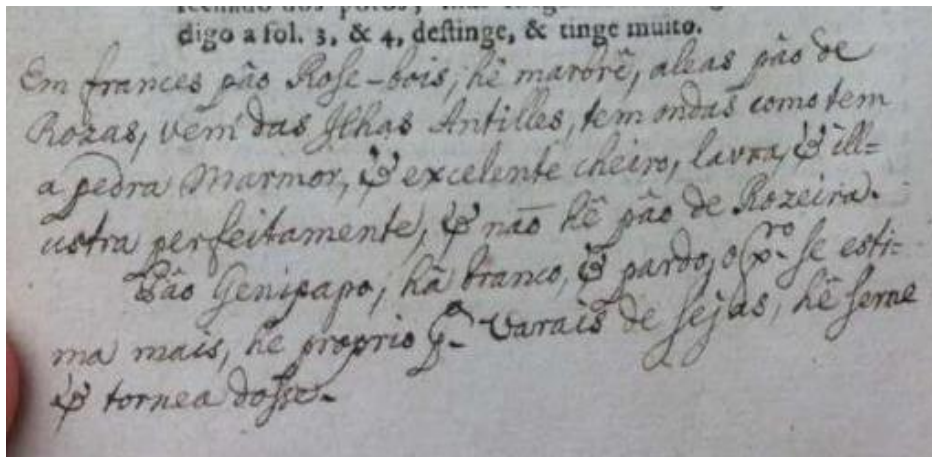 digo a fol. 3, & 4, destinge, & tinge muito.
Em frances pâo Rose-bois, hê marbrê, aleas pâo de
Rozas, vem das Ilhas Antilles, tem ondas como tem
a pedra Marmor, & excelente cheiro, lavra, & ill=
ustra perfeitamente, & não hê pâo de Rozeira.
Pâo Genipapo, hâ branco, & pardo, o pr.ro se esti=
ma mais, hê proprio p.a varais de sejas, hê serne
& tornea dosse.